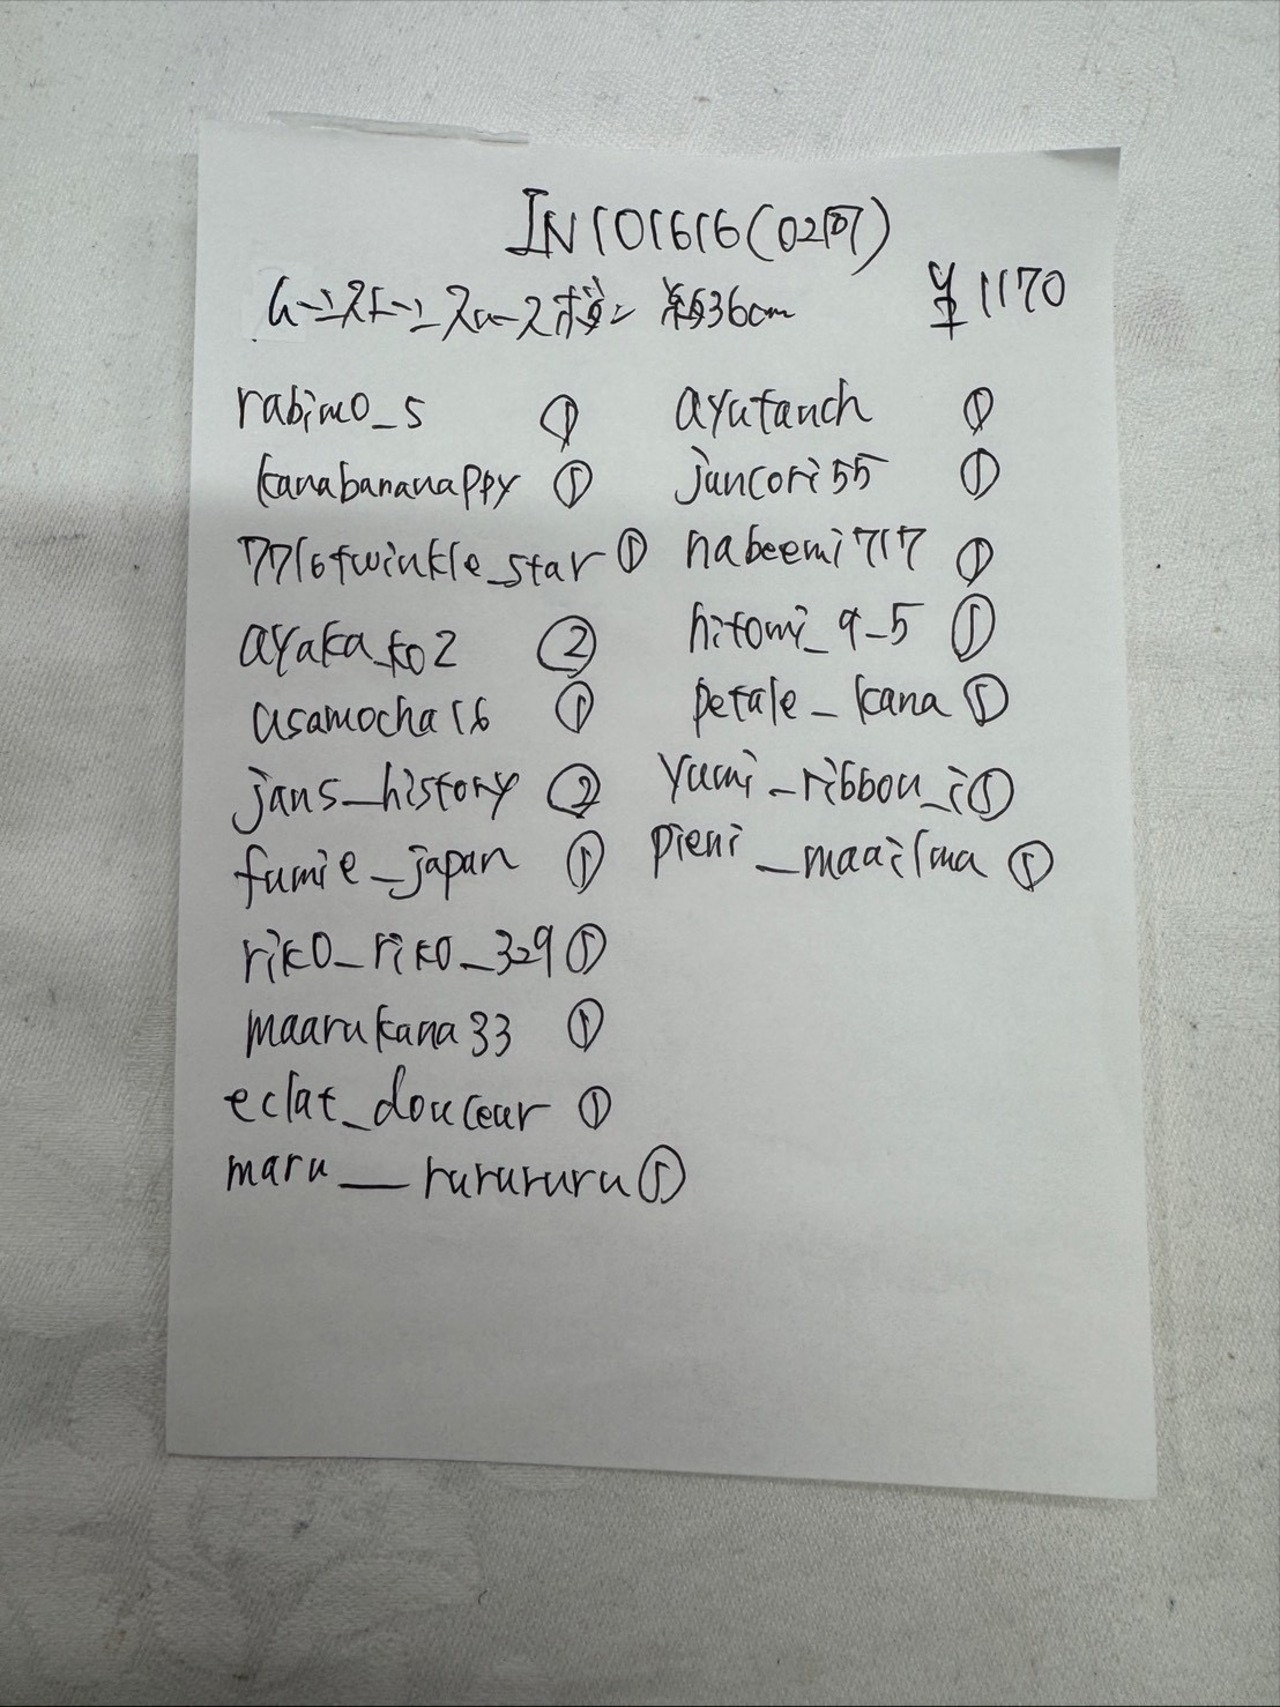 IN101616(0207)
ムーンストーン スムース ボタン 約36cm ¥1170
rabimo_s ①
kanabananappy ①
7716twinkle_star ①
ayaka_ko2 ②
asamocha16 ①
jans_history ②
fumie_japan ①
riko_riko_329 ①
maarukana33 ①
eclat_douceur ①
maru__rurururu ①
ayutanch ①
juncori55 ①
nabeemi717 ①
hitomi_9_5 ①
petale_kana ①
yumi_ribbon_i ①
pieni_maailma ①